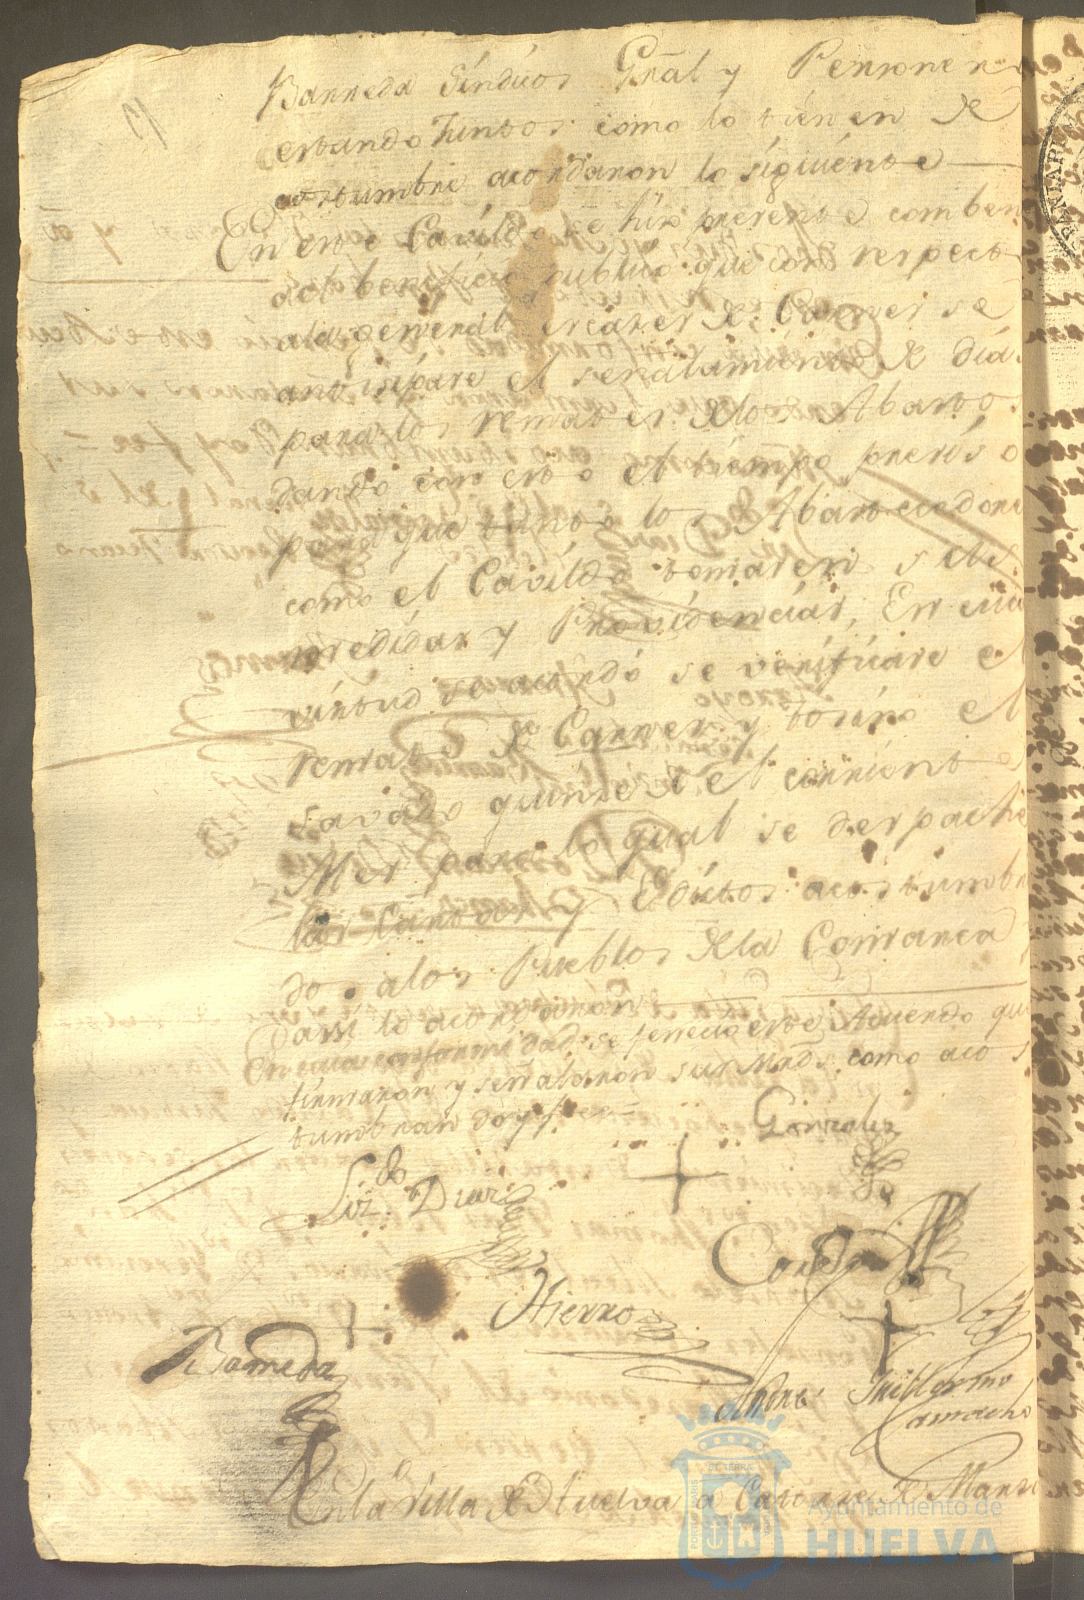 Barreda Síndicos Grãl y Personero
estando Juntos como lo tienen de
costumbre acordaron lo siguiente
En este Cavildo se hizo presente comben
al beneficio publico que con respecto
ala general escases de Carnes se
antisipare el señalamiento de dias
para los remates delos Abastos
dando con esto el tiempo preciso
para que tanto los Abastecedores
como el Cavildo tomasen sus
medidas y Providencias, En cuia
virtud se acordó se verificare el
remate de Carnes y tosino el
savado quinse del corriente
Mes para lo qual se despachen
las Cartas y Edictos acostumbra
do alos Pueblos dela Comarca
assi lo acordaron
En cuia conformidad se fenecio este Acuerdo que
firmaron y señalaron sus Mrds. como acos
tumbran doy fee =
Gonzales
Lizdo. Diaz
Hierro
Barreda
Andres Guillermo
Camacho
En la Villa de Huelva a Catorse de Marso
Ayuntamiento de
HUELVA